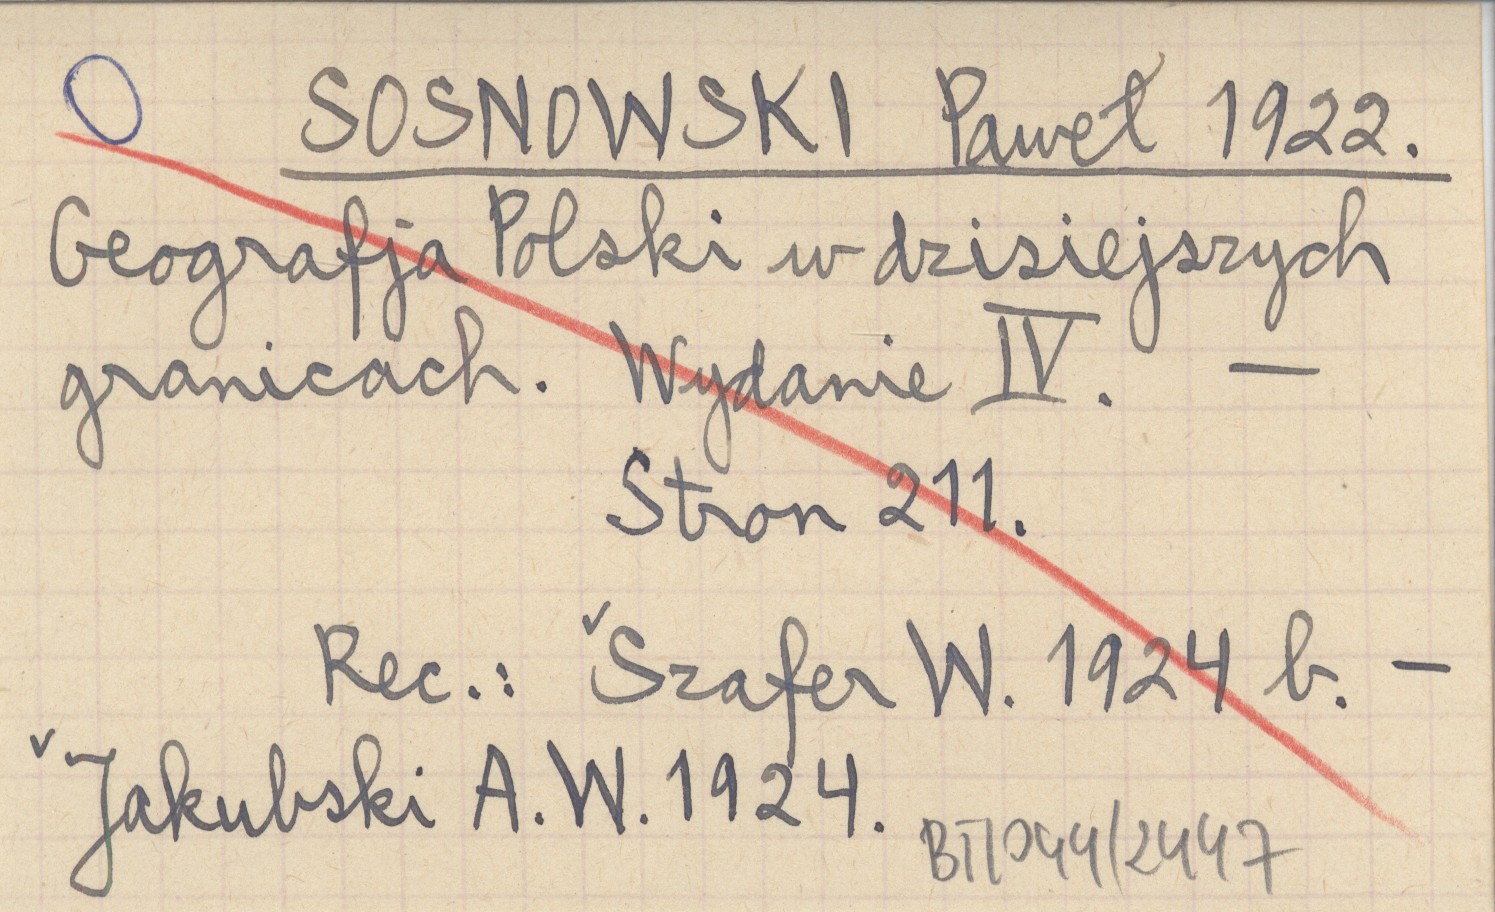 SOSNOWSKI Paweł 1922.
Geografja Polski w dzisiejszych
granicach. Wydanie IV. —
Stron 211.
Rec.: Szafer W. 1924 b. —
Jakubski A. W. 1924.